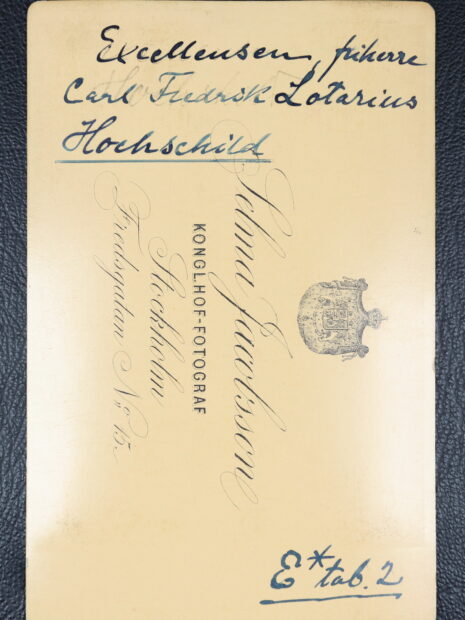 Excellensen, friherre
Carl Fredrik Lotarius
Hochschild
Selma Jacobsson
KONGL.HOF-FOTOGRAF
Stockholm
Fredsgatan No 15.
E* tab. 2